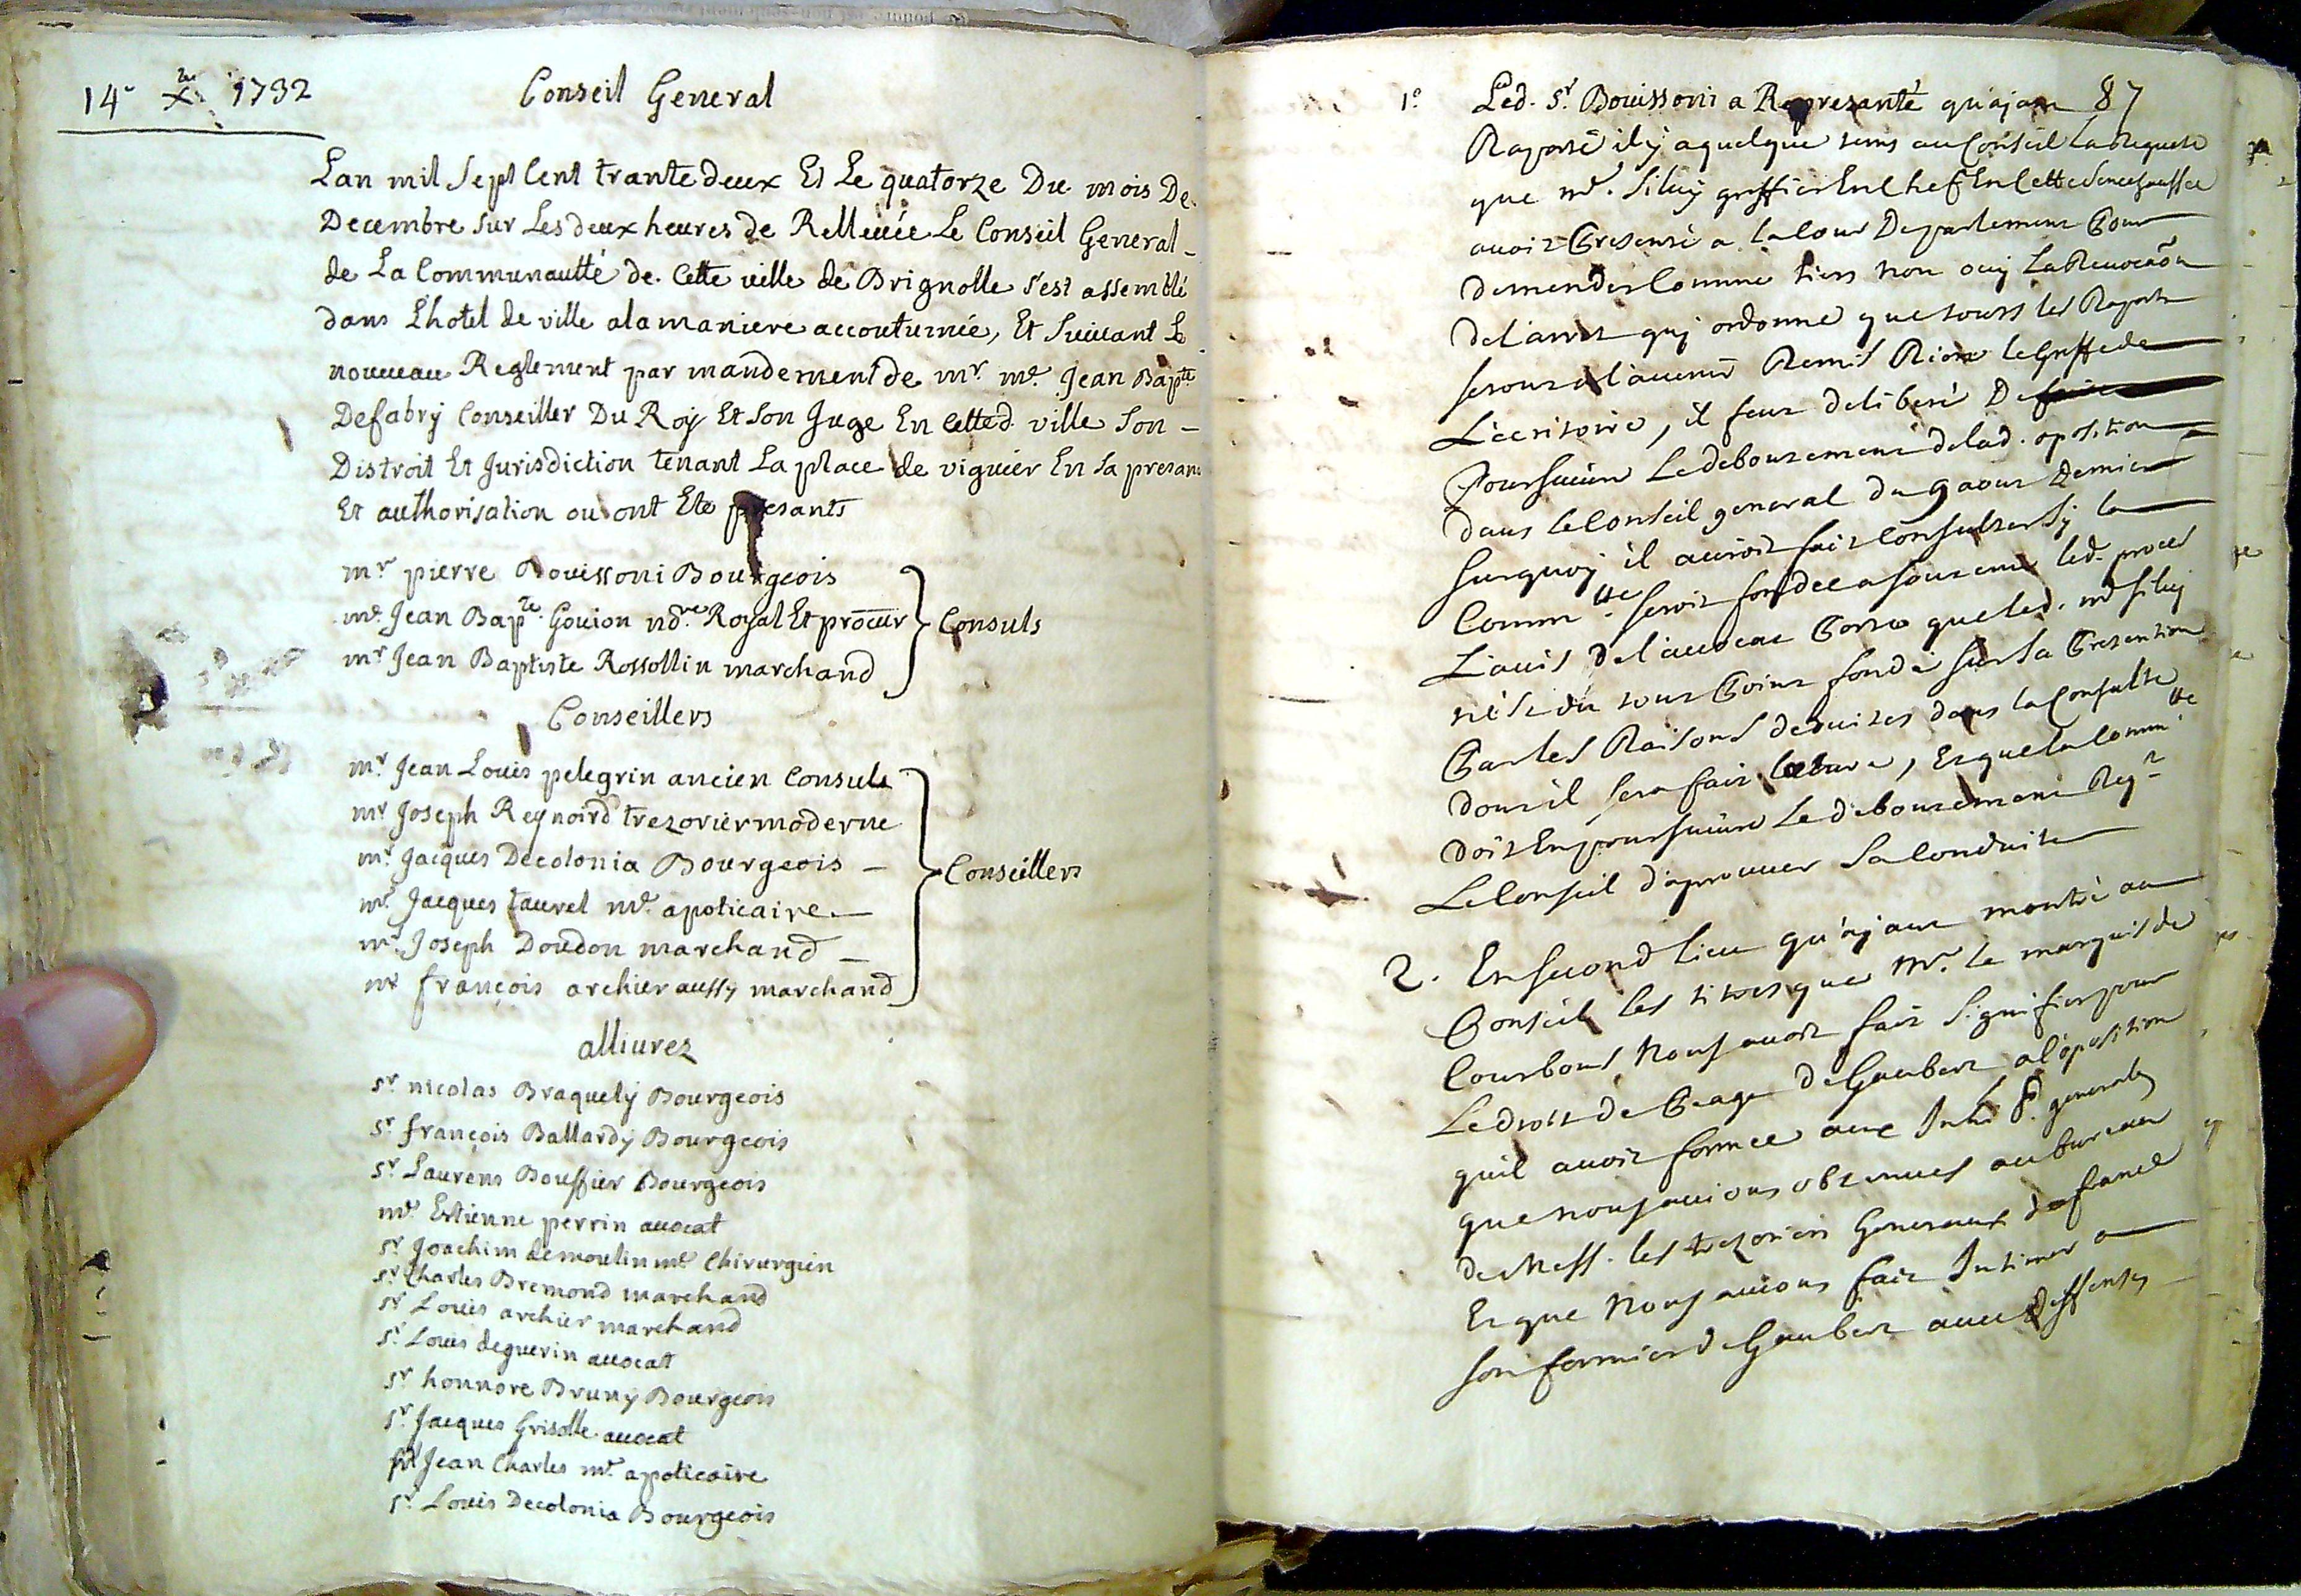 14e Xbre 1732
Conseil General
Lan mil Sept Cent trante deux Et Le quatorze Du mois De
Decembre Sur Les deux heures de Relleuée Le Conseil General
de La Communautté de Cette ville de Brignolle s'est assemblé
dans L'hotel de ville a la maniere accoutumée, Et Suiuant Le
nouueau Reglement par mandement de mr. me. Jean Bapte
Defabry Conseiller Du Roy Et Son Juge En Cetted. ville Son
Distroit Et Jurisdiction tenant La place de viguier En Sa presan
Et authorisation ou ont Ete presants
mr pierre Bouissoni Bourgeois
me. Jean Bapte. Goujon nore. Royal Et procur
mr Jean Baptiste Rossollin marchand
Consuls
Conseillers
mr Jean Louis pelegrin ancien Consul
mr Joseph Reynoird trezorier moderne
mr. Jacques Decolonia Bourgeois
mr. Jacques taurel me. apoticaire
mr. Joseph Doudon marchand
mr françois archier aussy marchand
Conseillers
alliurez
sr nicolas Braquety Bourgeois
sr. françois Ballardy Bourgeois
sr. Laurens Bouffier Bourgeois
me. Estienne perrin auocat
sr Joachim demoulin me Chirurgien
sr Charles Bremond marchand
sr Louis archier marchand
sr. Louis deguerin auocat
sr honnore Bruny Bourgeois
sr. Jacques Grisolle auocat
Jean Charles me. apoticaire
sr. Louis Decolonia Bourgeois
87
1° Led. sr. Bouissoni a Represanté qu'ajant
Raporté il y a quelque tems au Conseil La Requete
que me. Siluy greffier En Chef En Cette Senechaussée
auoit Presenté a la Cour De parlement Pour
demender Comme tiers non ouy La Reuocaõn
de l'arret quj ordonne que tous les Raports
seront a l'auenir Remis Riere le Greffe de
L'ecritoire, il feut deliberé De
Poursuiure Le deboutement de lad. oposition
dans le Conseil general du 9 aout dernier
Surquoy il auroit fait Consulter Sy la
Commtte. seroit fondée a soutenir led. proces
L'auis de l'auocat Porte que led. me Siluy
n'est du tout Point fondé sur sa Pretention
Par les Raisons deduites dans la Consulte
dont il sera fait lecture, Et que la Commtte
doit En poursuiure Le deboutement Reqt
Le Conseil d'aprouuer Sa Conduite
2. En Second lieu qu'ajant montré au
Conseil les titres que Mr. le marquis de
Courbons nous auoit fait Signifier pour
Le droit de Peage de Gaubert a l'oposition
quil auoit formée aux
generales
que nous auions obtenues au bureau
de Mess. les trezoriers Generaux de france
Et que nous auions fait Intimer a
son fermier de Gaubert auec deffenses